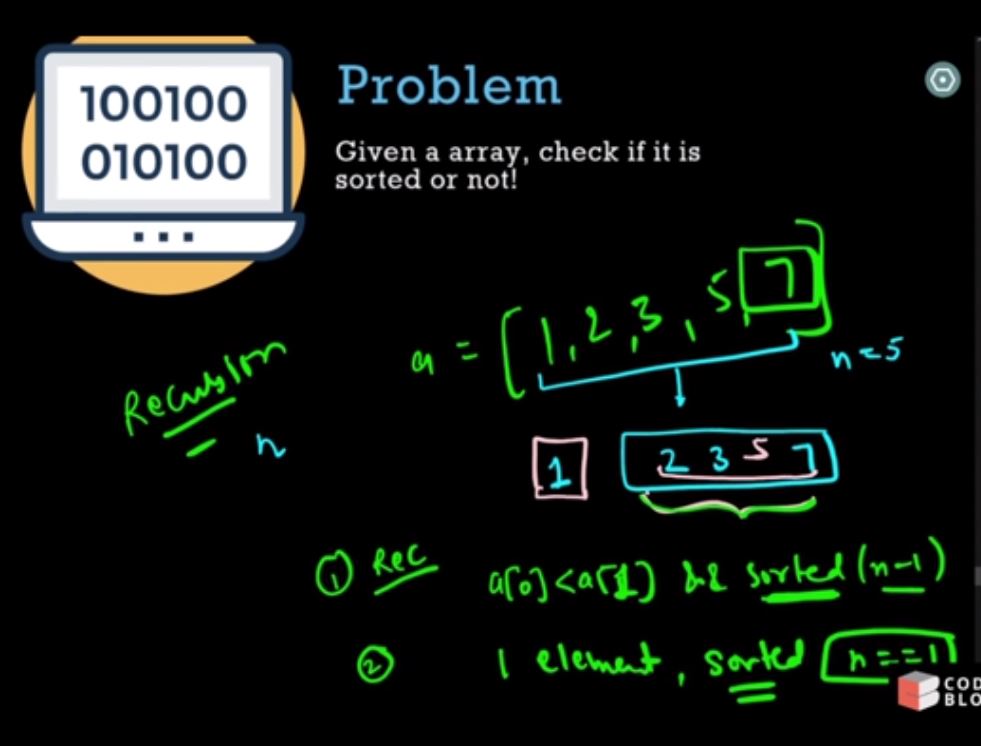 100100
010100
Problem
Given a array, check if it is
sorted or not!
a = [1, 2, 3, 5, 7]
n = 5
Recursion
n
1 2 3 5 7
① Rec a[0]<a[1] && sorted (n-1)
② 1 element, sorted n==1
COD
BLO